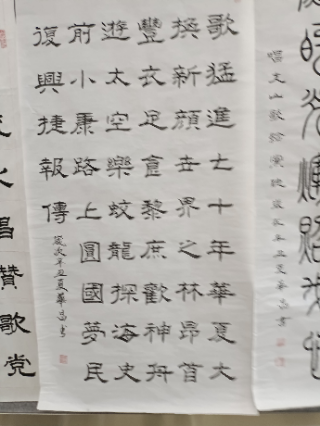 的光輝照我心
唱支山歌給黨聽 歲次辛丑夏華昌書
歌猛進七十年華夏大
換新顏世界之林昂首
豐衣足食黎庶歡神舟
遊太空樂蛟龍探海史
前小康路上圓國夢民
復興捷報傳
歲次辛丑夏華昌書
火唱贊歌党